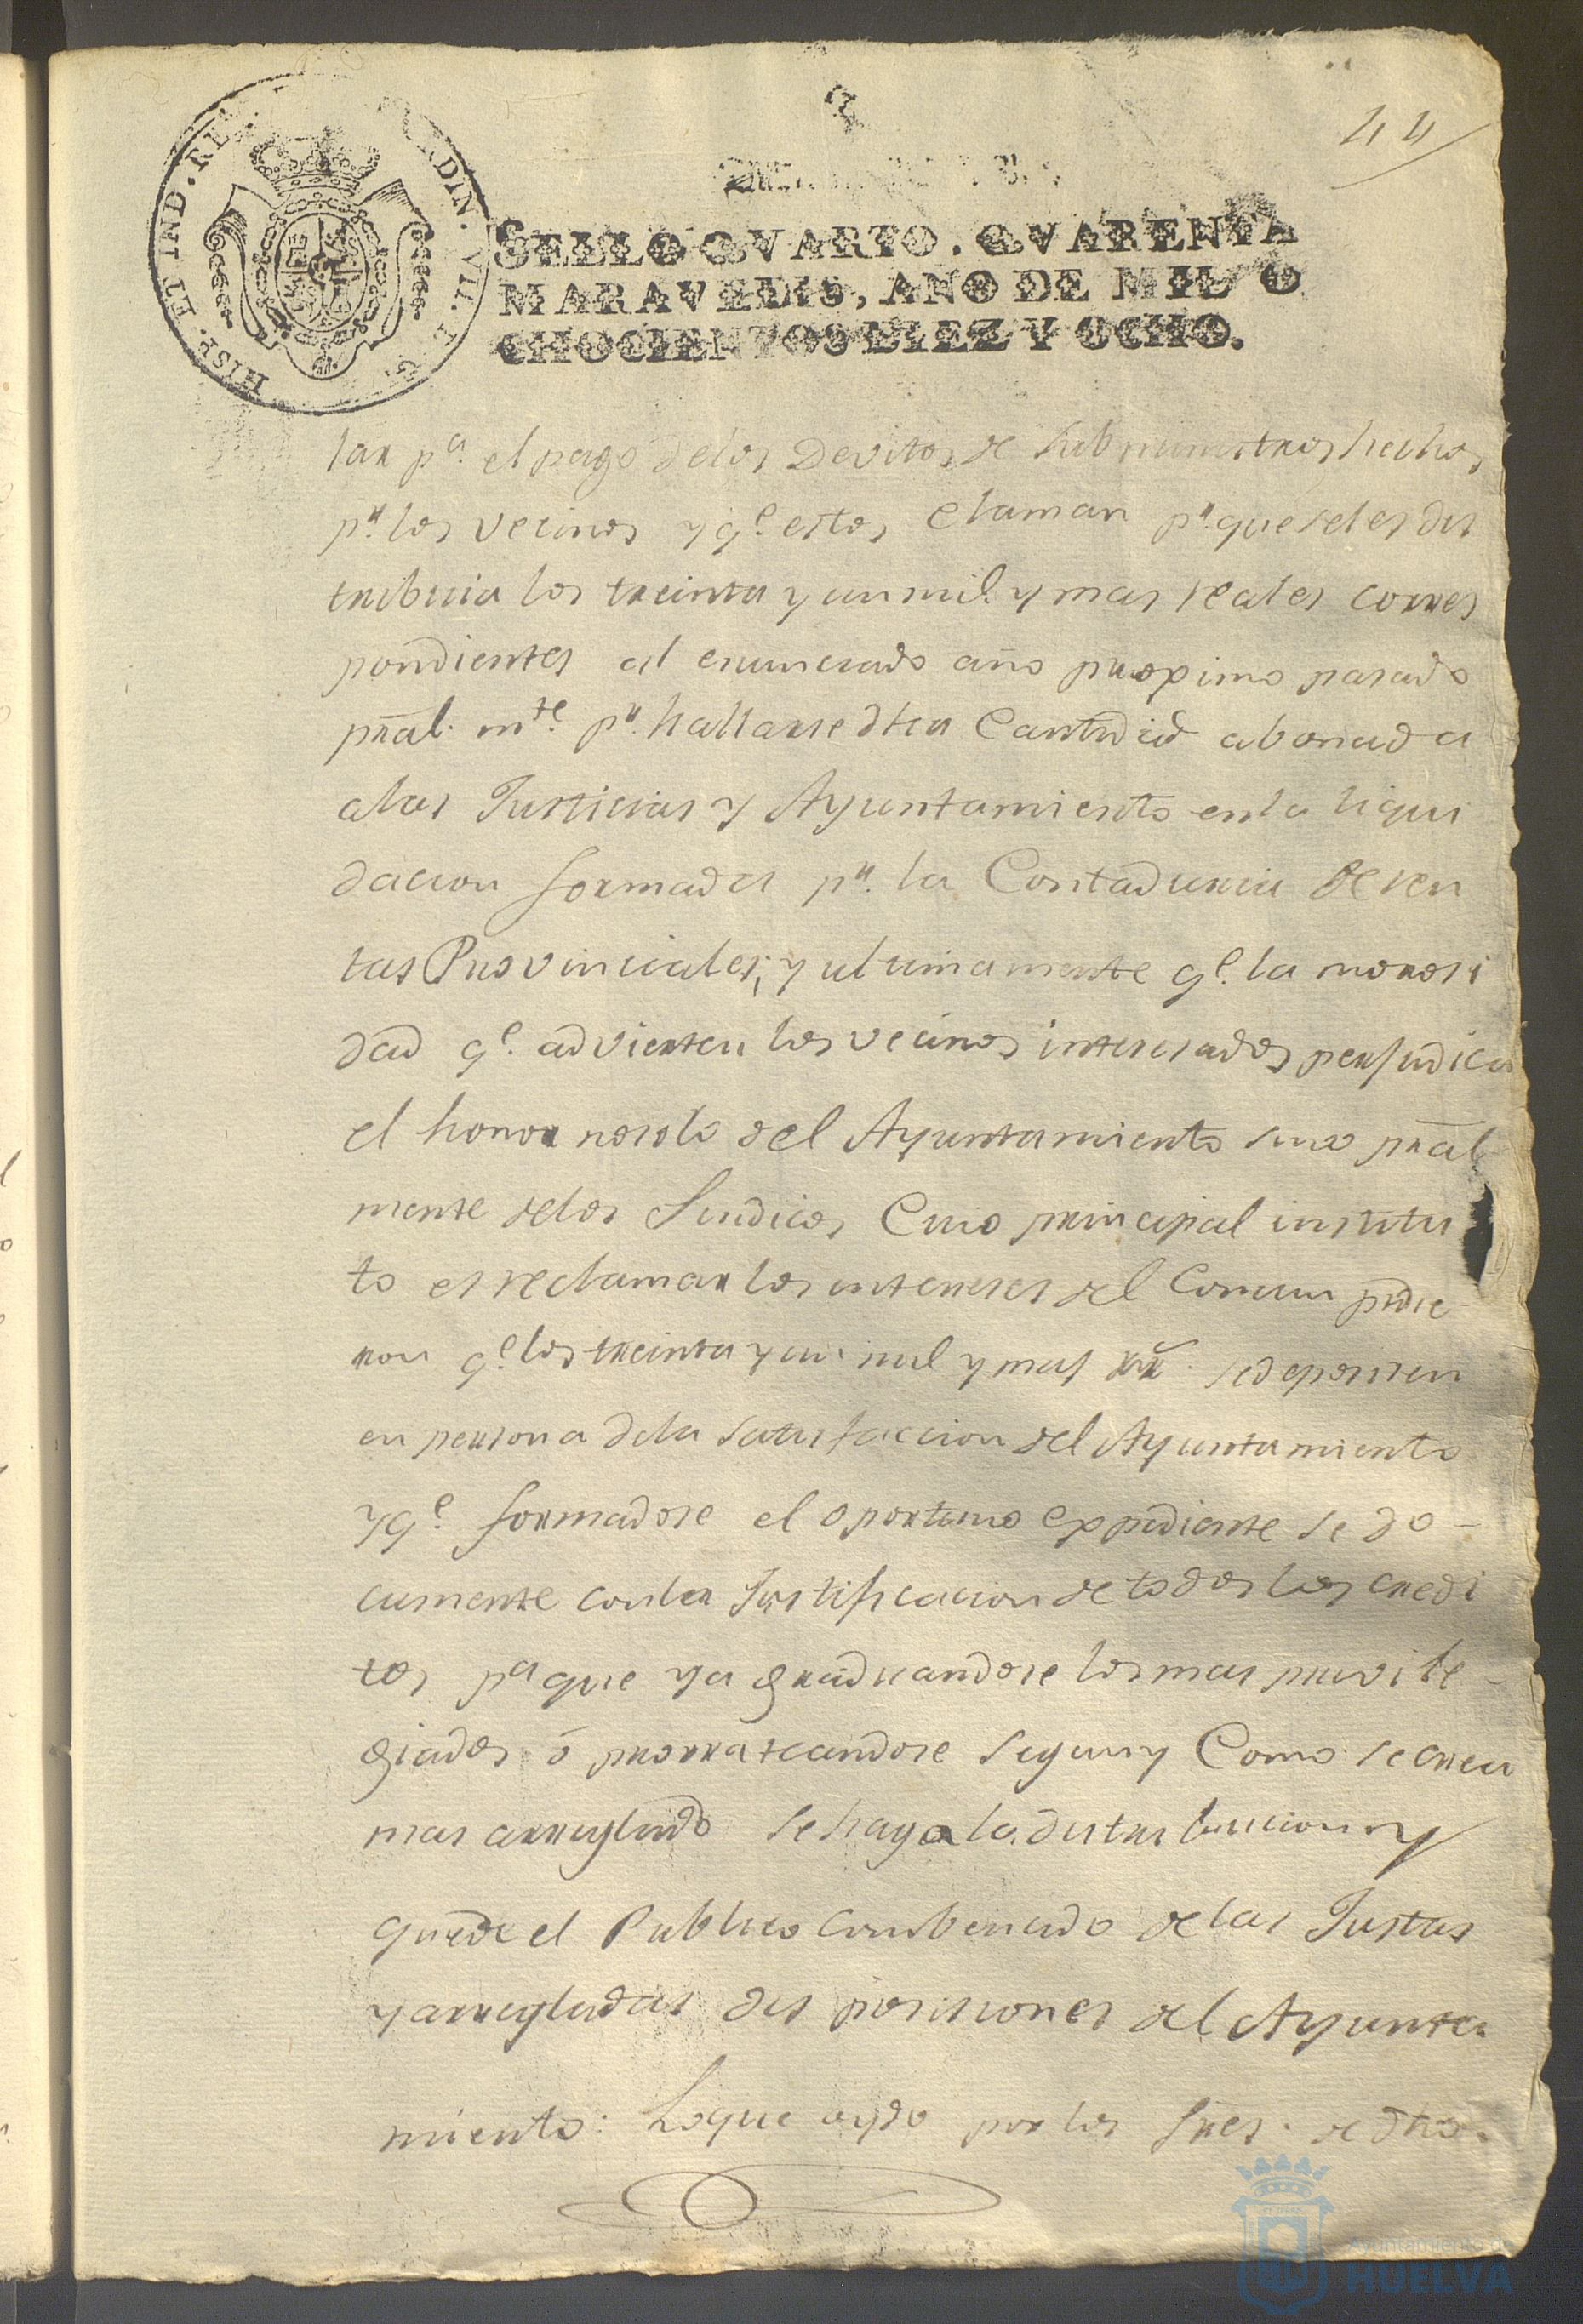 44
HISP. ET IND. R DIN. VII. F G.
SELLO QVARTO, QVARENTA
MARAVEDIS, AÑO DE MIL O
CHOCIENTOS DIEZ Y OCHO.
tar pa. el pago delos Devitos de subministros hechos
pr. los vecinos y qe. estos claman pr. que seles dis
tribuia los treinta y un mil y mas reales corres
pondientes al enunciado año proximo pasado
pral. mte. pr. hallarse dha Cantidad abonada
alas Justicias y Ayuntamiento enla liqui
dacion formada pr. la Contaduria de ren
tas Provinciales; y ultimamente qe. la morosi
dad qe. advierten los vecinos interesados perjudica
el honor nosolo del Ayuntamiento sino pral
mente delos Sindicos Cuio principal institu
to es reclamar los intereses del Comun pidie
ron qe. los treinta y un mil y mas rr. sedepositen
en persona dela satisfaccion del Ayuntamiento
yqe. formadose el oportuno expediente se do-
cumente conla Justificacion de todos los credi
tos pa que ya graduandose los mas privile-
giados ó prorrateandose segun y Como se crea
mas arreglado se haga la distribucion y
quede el Publico combencido de las Justas
y arregladas disposiciones del Ayunta
miento: Loque oydo por los Sres. de dho.
Ayuntamiento de
HUELVA